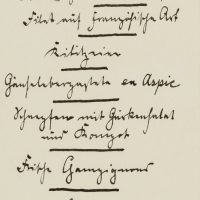 Filet auf Französische Art
Kibitzeier
Gänseleberpastete en Aspic
Schnepfen mit Gurkensalat
und Kompot
Frische Champignons